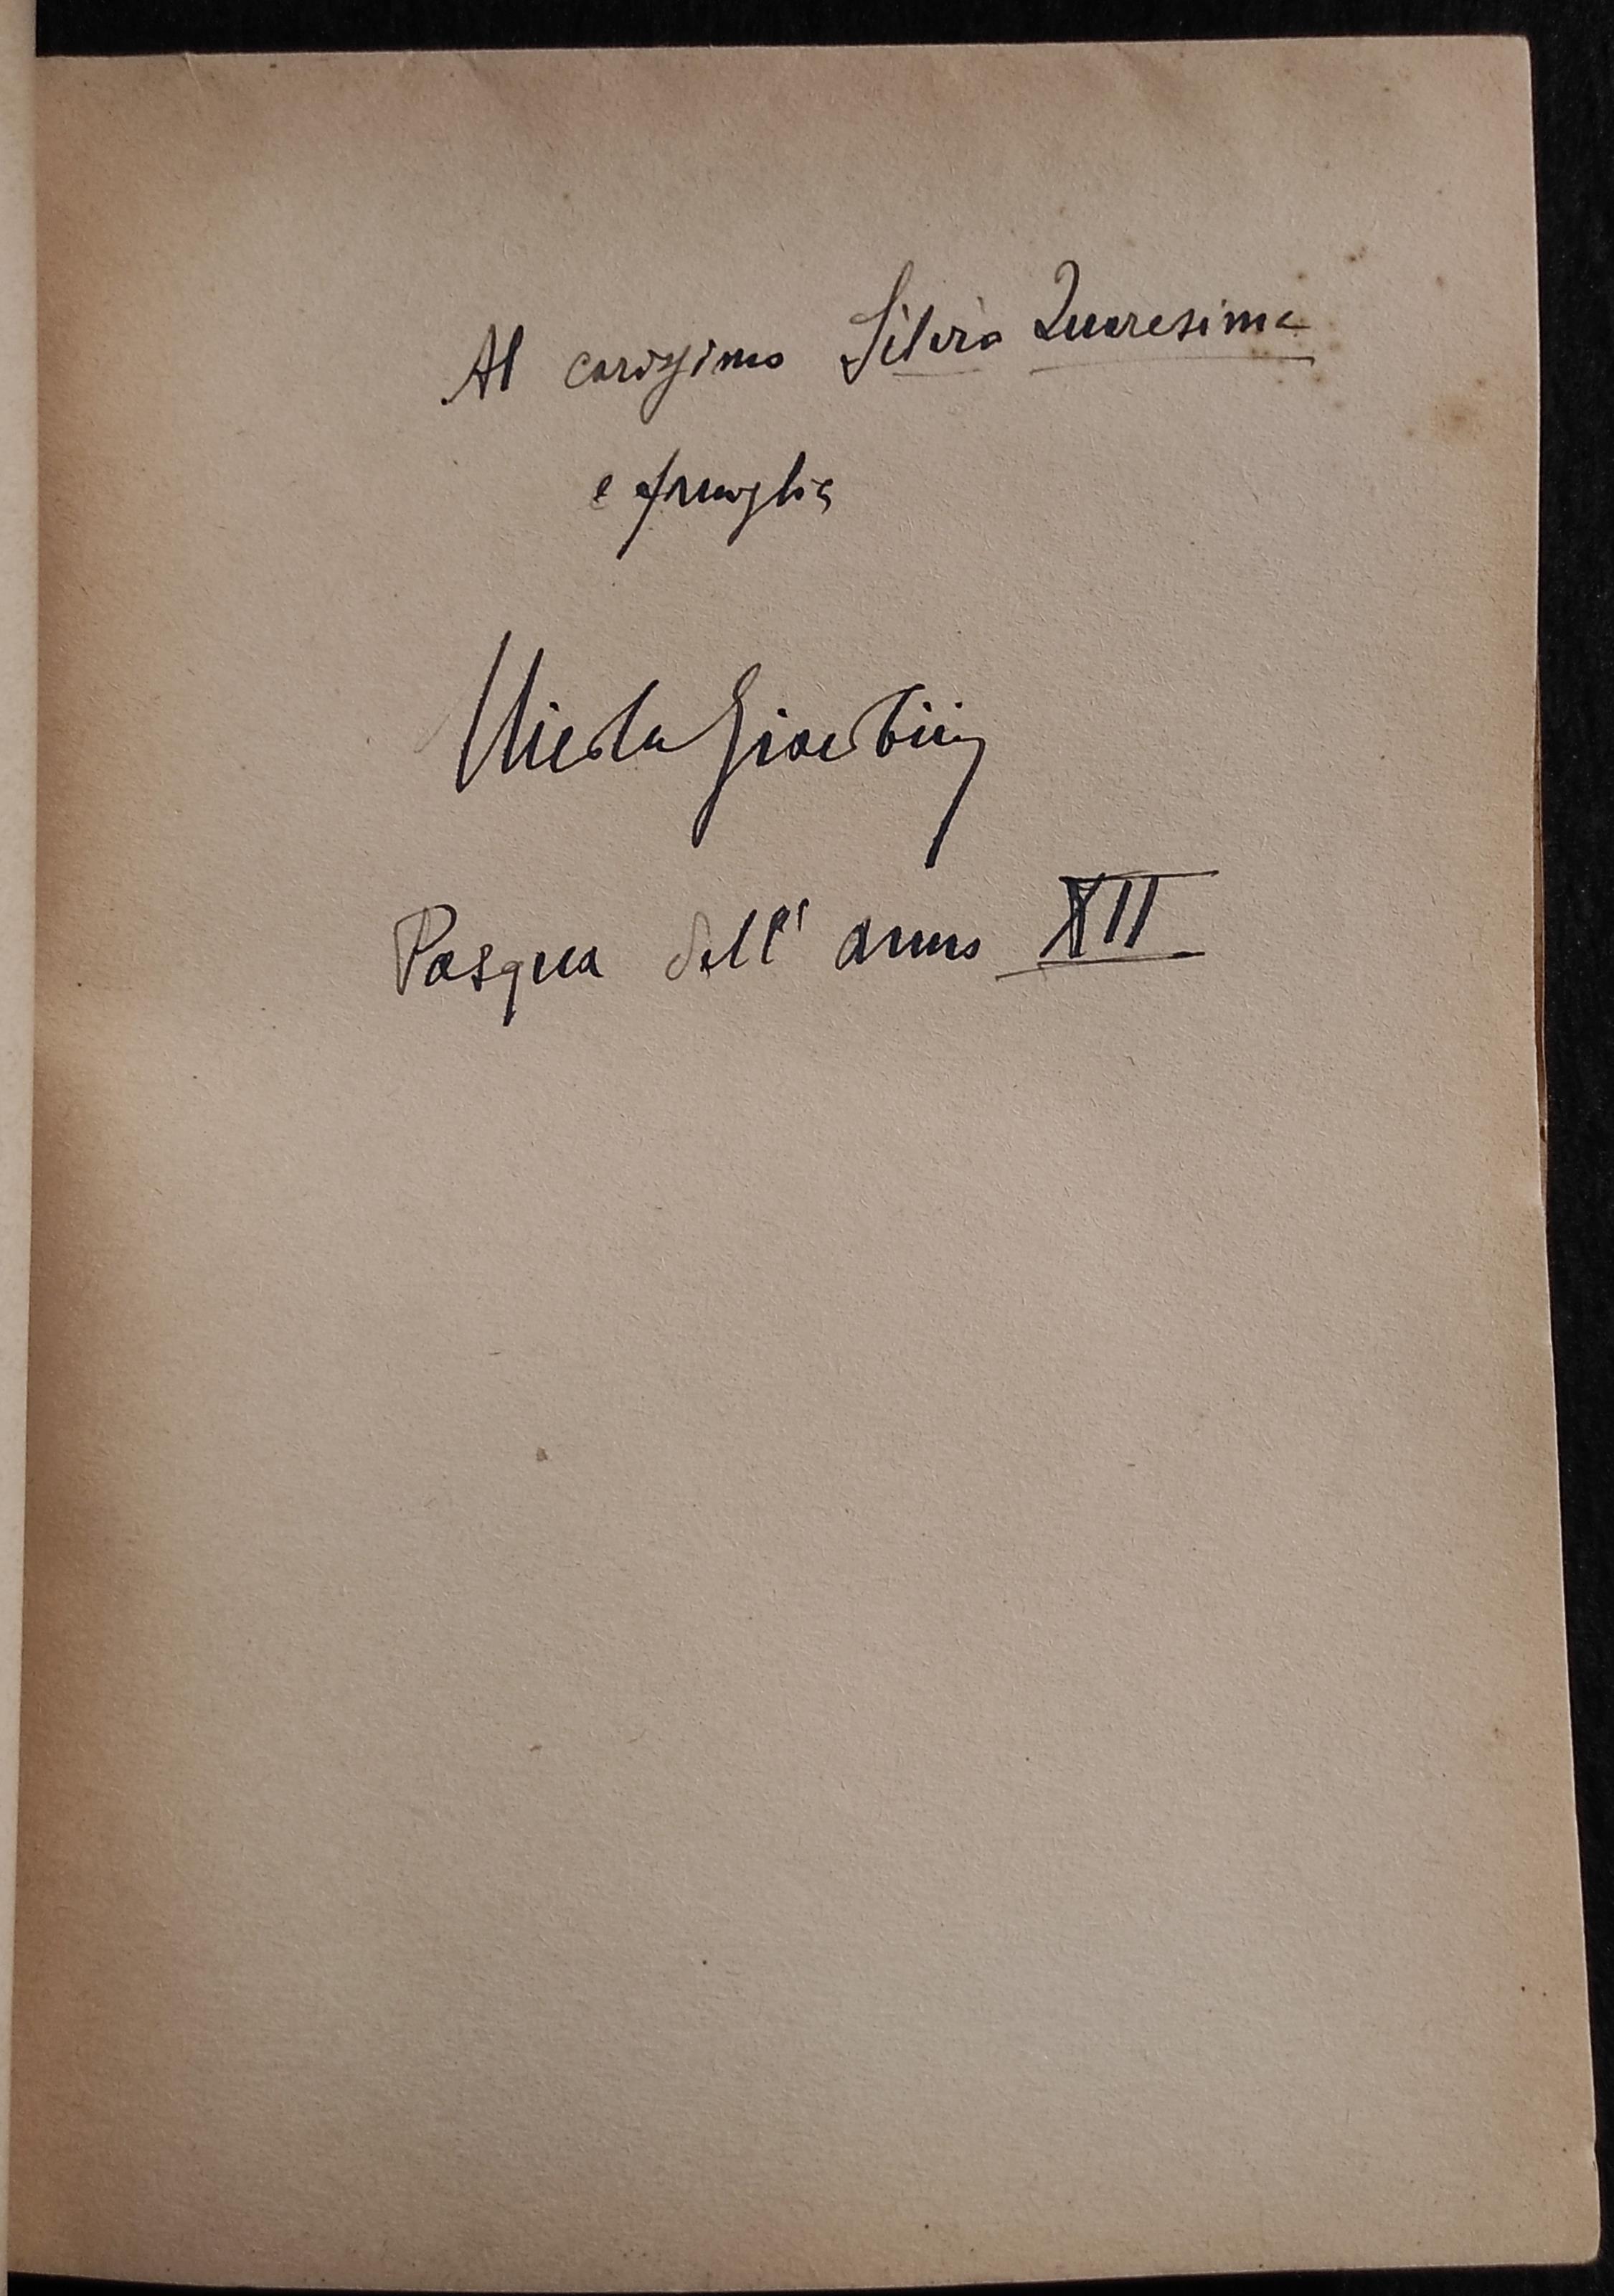 Al carissimo Silvio Quaresima
e famiglia
Nicola
Pasqua dell' anno XII